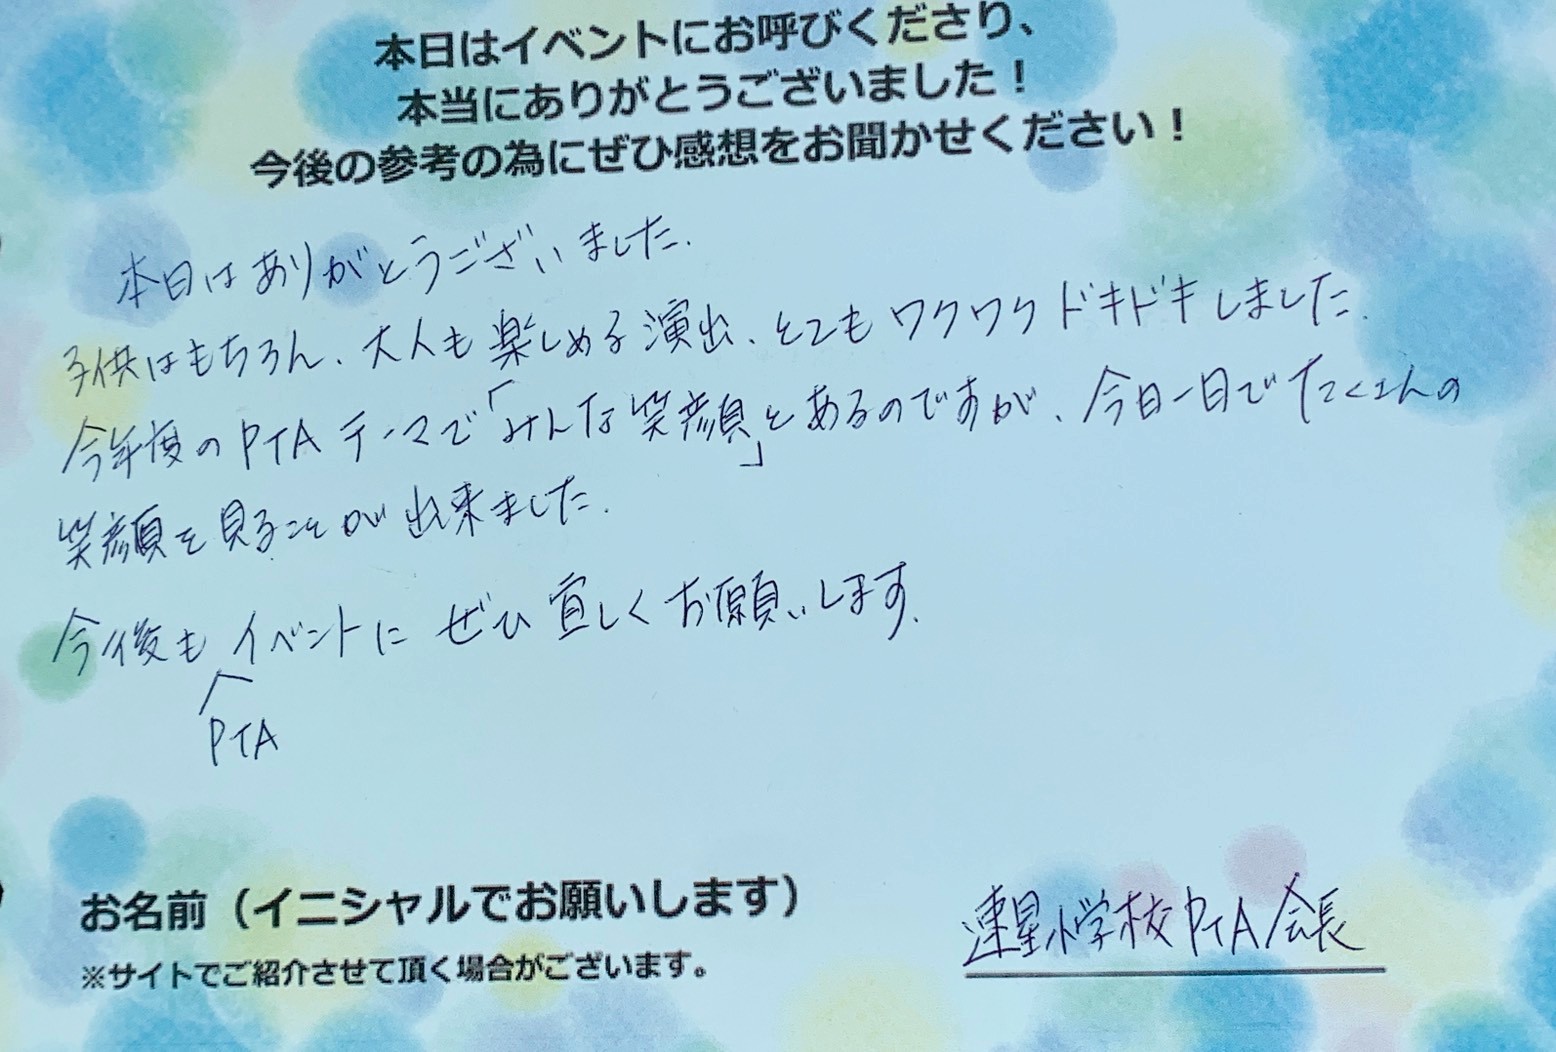 本日はイベントにお呼びくださり、
本当にありがとうございました！
今後の参考の為にぜひ感想をお聞かせください！
本日はありがとうございました.
子供はもちろん、大人も楽しめる演出、とてもワクワクドキドキしました.
今年度のPTAテーマで「みんな笑顔」とあるのですが、今日一日でたくさんの
笑顔を見ることが出来ました.
今後もイベントにぜひ宜しくお願いします.
PTA
お名前（イニシャルでお願いします）
※サイトでご紹介させて頂く場合がございます。
連星小学校PTA会長